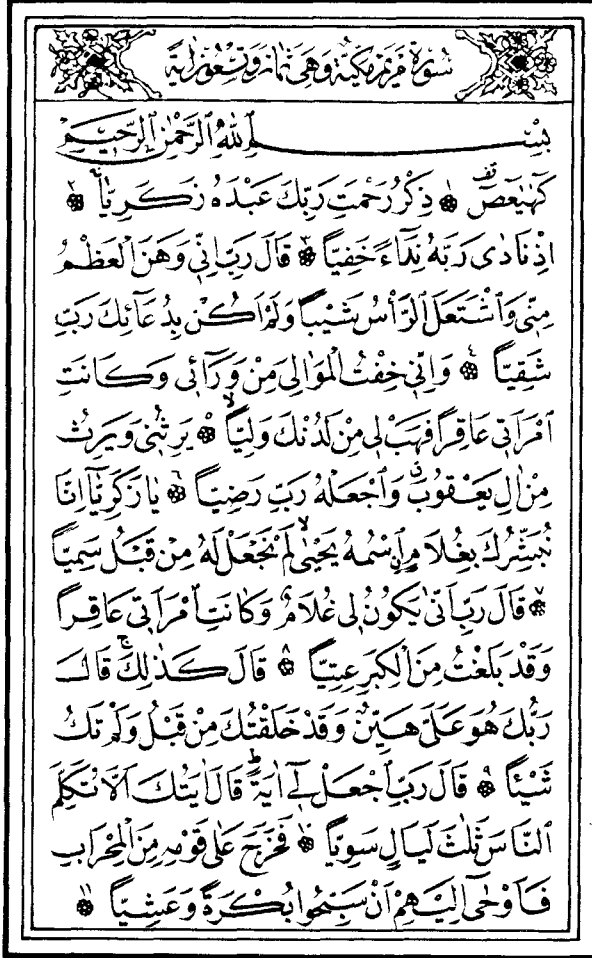 سُورَةُ مَرْيَمَ مَكِّيَّةٌ وَهِيَ ثَمَانٌ وَتِسْعُونَ اٰيَةً
بِسْمِ اللّٰهِ الرَّحْمٰنِ الرَّحِيمِ
كٓهٰيٰعٓصٓ ۞ ذِكْرُ رَحْمَتِ رَبِّكَ عَبْدَهُ زَكَرِيَّاۚ ۞
اِذْ نَادٰى رَبَّهُ نِدَٓاءً خَفِيًّا ۞ قَالَ رَبِّ اِنّ۪ي وَهَنَ الْعَظْمُ
مِنّ۪ي وَاشْتَعَلَ الرَّأْسُ شَيْبًا وَلَمْ اَكُنْ بِدُعَٓائِكَ رَبِّ
شَقِيًّا ۞ وَاِنّ۪ي خِفْتُ الْمَوَالِيَ مِنْ وَرَٓائ۪ي وَكَانَتِ
امْرَاَت۪ي عَاقِرًا فَهَبْ ل۪ي مِنْ لَدُنْكَ وَلِيًّاۙ ۞ يَرِثُن۪ي وَيَرِثُ
مِنْ اٰلِ يَعْقُوبَۗ وَاجْعَلْهُ رَبِّ رَضِيًّا ۞ يَا زَكَرِيَّٓا اِنَّا
نُبَشِّرُكَ بِغُلَامٍۨ اسْمُهُ يَحْيٰىۙ لَمْ نَجْعَلْ لَهُ مِنْ قَبْلُ سَمِيًّا
۞ قَالَ رَبِّ اَنّٰى يَكُونُ ل۪ي غُلَامٌ وَكَانَتِ امْرَاَت۪ي عَاقِرًا
وَقَدْ بَلَغْتُ مِنَ الْكِبَرِ عِتِيًّا ۞ قَالَ كَذٰلِكَۚ قَالَ
رَبُّكَ هُوَ عَلَيَّ هَيِّنٌ وَقَدْ خَلَقْتُكَ مِنْ قَبْلُ وَلَمْ تَكُ
شَيْـًٔا ۞ قَالَ رَبِّ اجْعَلْ ل۪ٓي اٰيَةًۜ قَالَ اٰيَتُكَ اَلَّا تُكَلِّمَ
النَّاسَ ثَلٰثَ لَيَالٍ سَوِيًّا ۞ فَخَرَجَ عَلٰى قَوْمِه۪ مِنَ الْمِحْرَابِ
فَاَوْحٰٓى اِلَيْهِمْ اَنْ سَبِّحُوا بُكْرَةً وَعَشِيًّا ۞